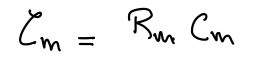 τm = Rm Cm